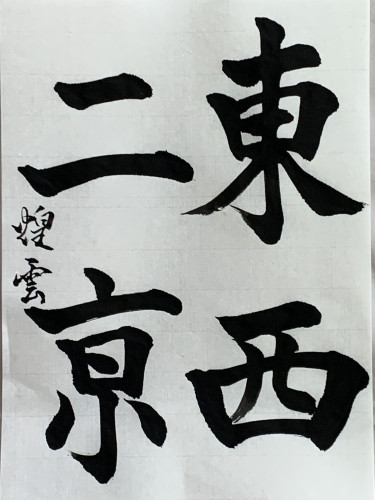 東西
二亰
煌雲